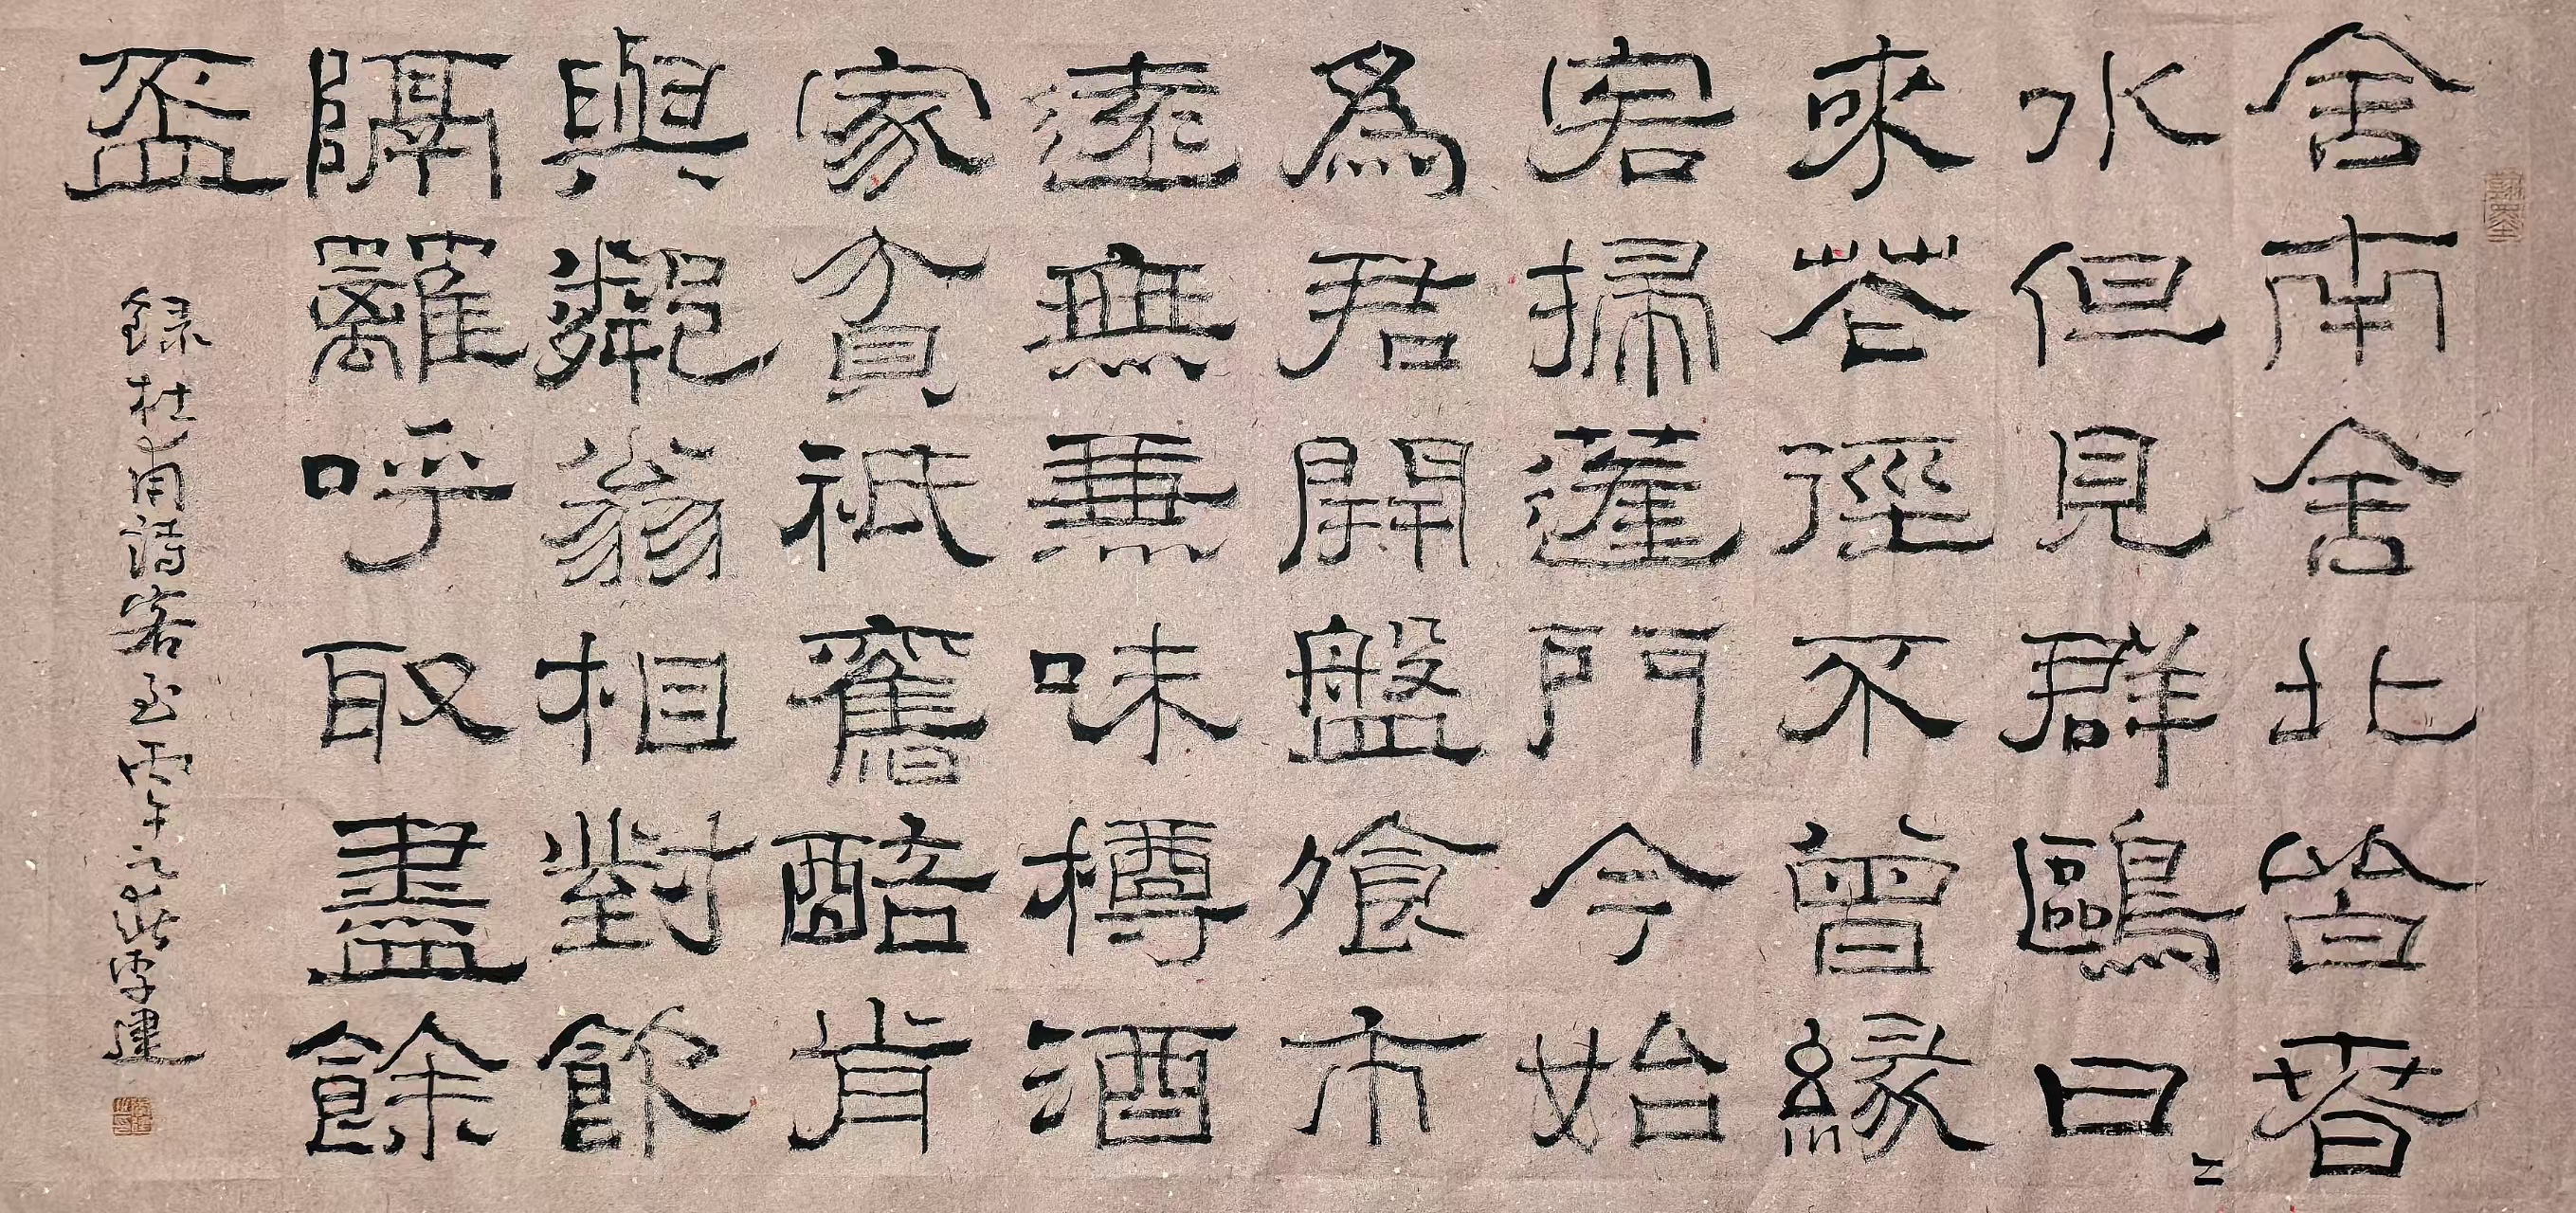 舍南舍北皆春
水但見群鷗日二
來花徑不曾緣
客掃蓬門今始
爲君開盤飧市
遠無兼味樽酒
家貧祇舊醅肯
與鄰翁相對飲
隔籬呼取盡餘
盃
録杜甫詩客至丙午之春建